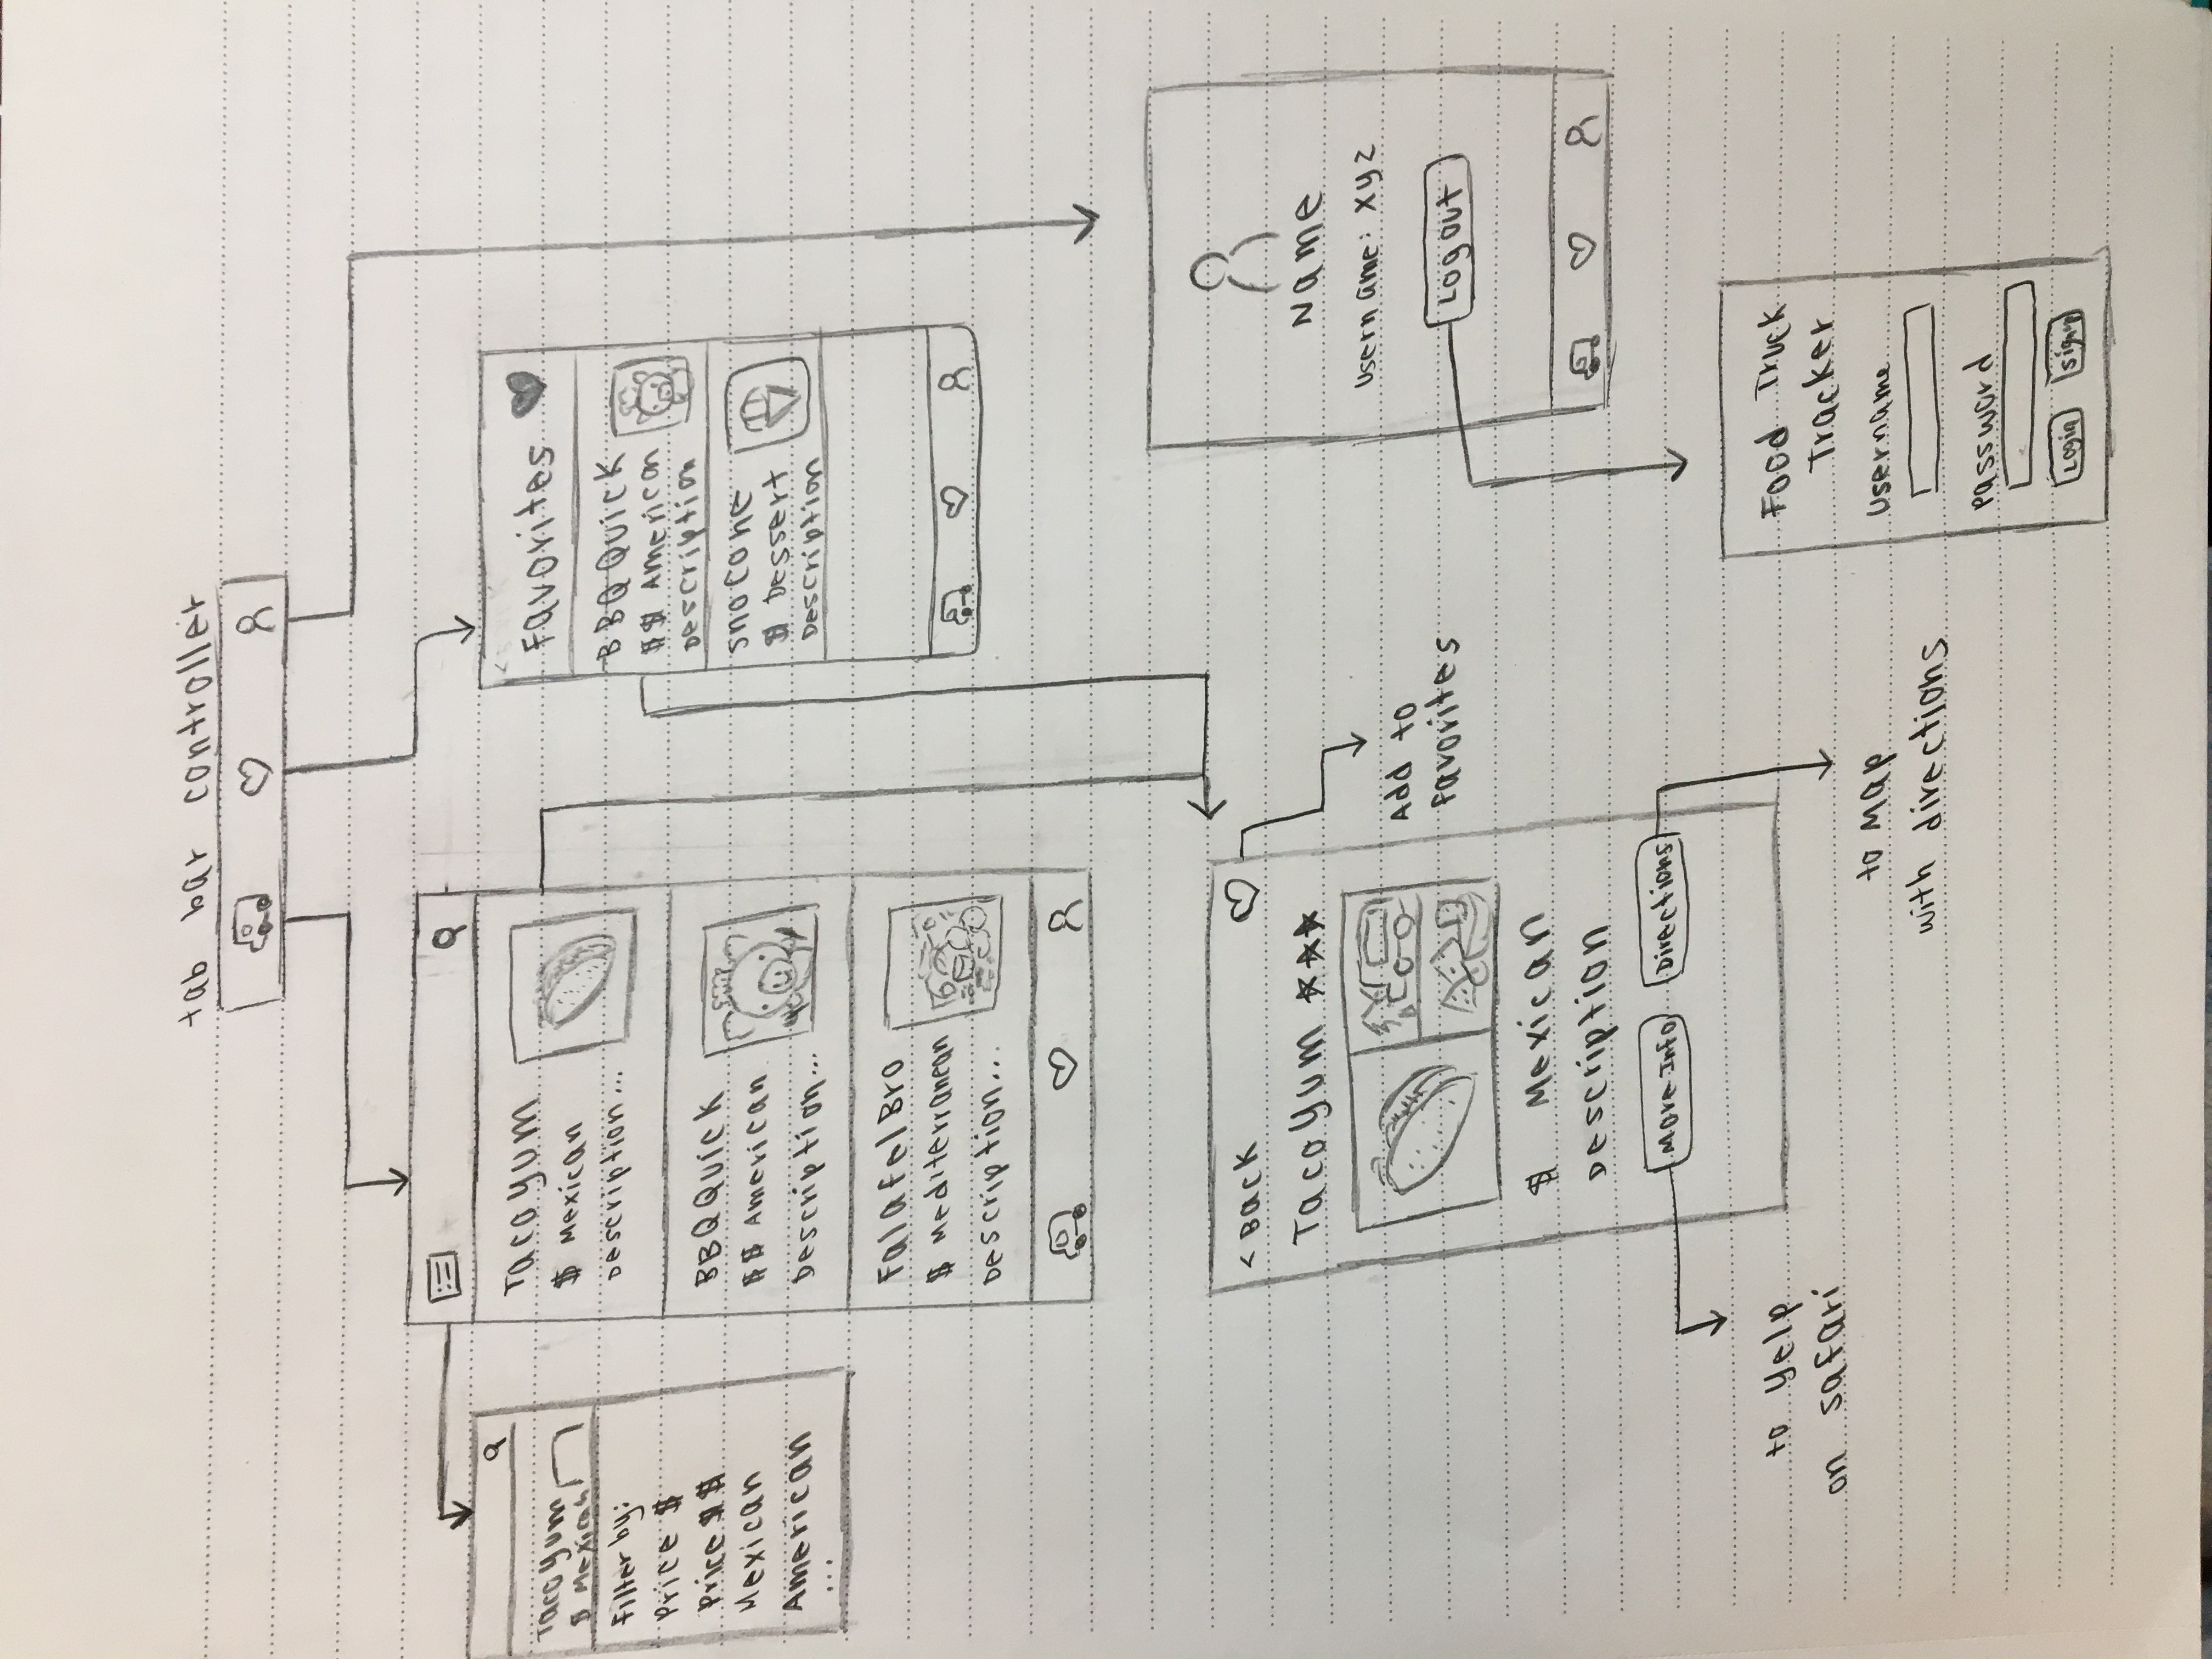 tab bar controller
TacoYum
$ Mexican
Filter by:
Price $
Price $$
Mexican
American
...
TacoYum
$ Mexican
Description...
BBQQuick
$$ American
Description...
FalafelBro
$ Mediterranean
Description...
<
Favorites
BBQQuick
$$ American
Description
SnoCone
$ Dessert
Description
< Back
TacoYum
$ Mexican
Description
More Info
Directions
Add to
favorites
to Yelp
on safari
to Map
with directions
Name
Username: xyz
Log out
Food Truck
Tracker
Username
Password
Login
Signup